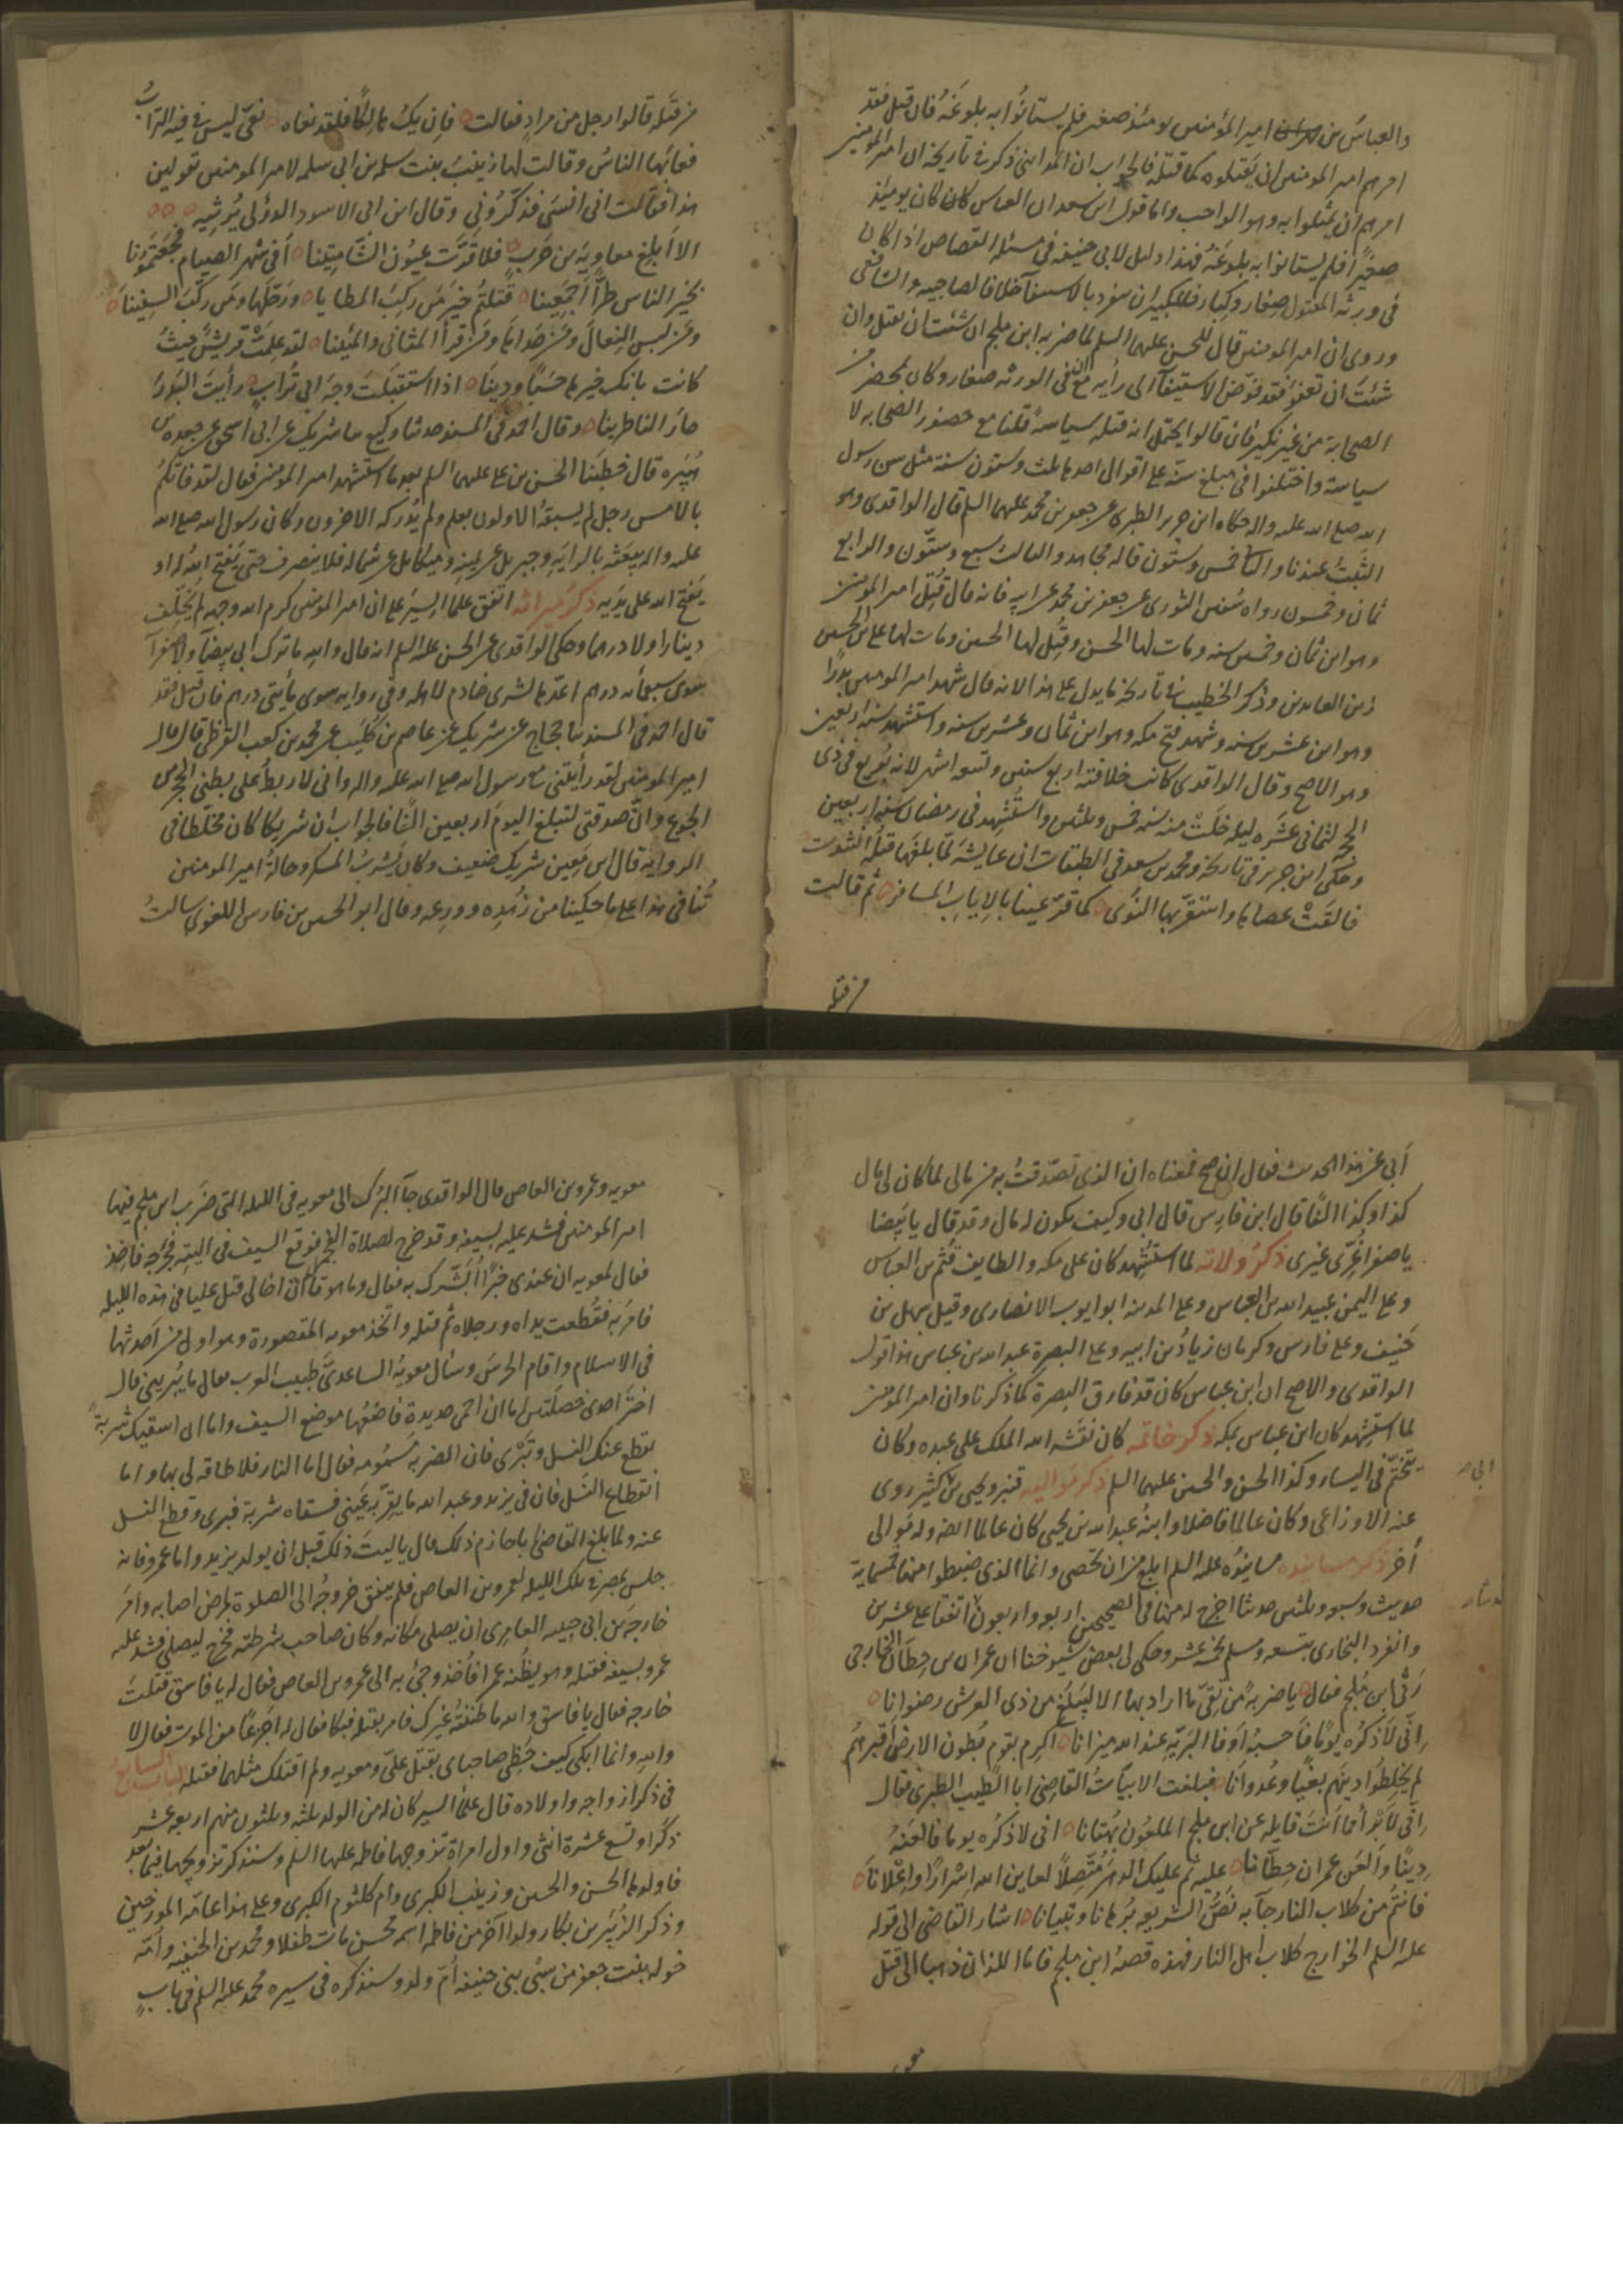 والعباس بن امير المؤمنين يومئذ صغير فلم يستانوا به بلوغه فان قيل فقد
امرهم امير المومنين ان يقتلوه كما قتله فالجواب ان المداينى ذكر فى تاريخه ان امير المومنين
امرهم ان يمثلوا به وهو الواجب واما قول ابن سعد ان العباس كان يومئذ
صغيرا فلم يستانوا به بلوغه فهذا دليل لابى حنيفه فى مسئله القصاص اذا كان
فى ورثه المقتول صغار وكبار فللكبير ان ينفرد بالاستيفآ خلافا لصاحبيه والشافعى
وروى ان امير المومنين قال للحسن عليهما السلم لما ضربه ابن ملجم ان شئت ان تقتل وان
شئت ان تعفو فقد فوض الاستيفآ الى رأيه مع ان فى الورثه صغار وكان بمحضر من
الصحابة من غير نكير فان قالوا يحتمل انه قتله سياسة قلنا مع حضور الصحابه لا
سياسة واختلفوا فى مبلغ سنه على اقوال احدها ثلث وستون سنة مثل سن رسول
الله صلى الله عليه واله حكاه ابن جرير الطبرى عن جعفر بن محمد عليهما السلم قال الواقدى وهو
الثبت عندنا والثانى خمس وستون قاله مجاهد والثالث سبع وستون والرابع
ثمان وخمسون رواه سفين الثورى عن جعفر بن محمد عن ابيه فانه قال قتل امير المومنين
وهو ابن ثمان وخمسين سنه ومات لها الحسن وقتل لها الحسين ومات لها على بن الحسين
زين العابدين وذكر الخطيب فى تاريخه ما يدل على هذا لانه قال شهد امير المومنين بدرا
وهو ابن عشرين سنه وشهد فتح مكه وهو ابن ثمان وعشرين سنه واستشهد سنه اربعين
وهو الاصح وقال الواقدى كانت خلافته اربع سنين وتسعه اشهر لانه بويع فى ذى
الحجه لثمانى عشره ليله خلت منه سنه خمس وثلثين واستشهد فى رمضان سنه اربعين
وحكى ابن جرير فى تاريخه ومحمد بن سعد فى الطبقات ان عايشه لما بلغها قتله انشدت
فالقت عصاها واستقر بها النوى كما قر عينا بالاياب المسافر ثم قالت
من قتله
من قتله قالوا رجل من مراد فقالت فان يك هالكا فلقد نعاه نعى ليس فى فيه التراب
فعابها الناس وقالت لها زينب بنت سلمه بن ابى سلمه لامير المومنين تقولين
هذا فقالت انى انسى فذكرونى وقال ابن ابى الاسود الدؤلى يرثيه
الا ابلغ معاوية بن حرب فلا قرت عيون الشامتينا أفى شهر الصيام فجعتمونا
بخير الناس طرا اجمعينا قتلتم خير من ركب المطايا ورحلها ومن ركب السفينا
ومن لبس النعال ومن حذاها ومن قرأ المثانى والمئينا لقد علمت قريش حيث
كانت بانك خيرها حسبا ودينا اذا استقبلت وجه ابى تراب رأيت البدر
حار الناظرينا وقال احمد فى المسند حدثنا وكيع ثنا شريك عن ابى اسحق عن
هبيره قال خطبنا الحسن بن على عليهما السلم بعد ما استشهد امير المومنين فقال لقد فاتكم
بالامس رجل لم يسبقه الاولون بعلم ولم يدركه الاخرون وكان رسول الله صلى الله
عليه واله يبعثه بالرايه وجبريل عن يمينه وميكايل عن شماله فلا ينصرف حتى يفتح الله له او
يفتح الله على يديه ذكر ميراثه اتفق علما السير على ان امير المومنين كرم الله وجهه لم يخلف
دينارا ولا درهما وحكى الواقدى عن الحسن عليه السلم انه قال والله ما ترك ابى بيضآ ولا صفرآ
سوى سبعمأه درهم اعدها لشرى خادم لاهله وفى روايه سوى مأيتى درهم فان قيل فقد
قال احمد فى المسند ثنا حجاج عن شريك عن عاصم بن كليب عن محمد بن كعب القرظى قال قال
امير المومنين لقد رأيتنى مع رسول الله صلى الله عليه واله وانى لاربط على بطنى الحجر من
الجوع وان صدقتى لتبلغ اليوم اربعين الفا فالجواب ان شريكا كان مختلطا فى
الروايه قال ابن معين شريك ضعيف وكان يشرب المسكر وحالة امير المومنين
تنافى هذا على ما حكينا من زهده وورعه وقال ابو الحسين بن فارس اللغوى سالت
أبى عن هذا الحديث فقال ان صح فمعناه ان الذى تصدقت به من مالى لما كان لى مال
كذا وكذا الفا قال ابن فارس قال ابى وكيف يكون له مال وقد قال يا بيضا
يا صفرا غرى غيرى ذكر ولاته لما استشهد كان على مكه والطايف قثم بن العباس
وعلى اليمن عبيد الله بن العباس وعلى المدينه ابو ايوب الانصارى وقيل سهل بن
حنيف وعلى فارس وكرمان زياد بن ابيه وعلى البصرة عبد الله بن عباس هذا قول
الواقدى والاصح ان ابن عباس كان قد فارق البصرة كما ذكرنا وان امير المومنين
لما استشهد كان ابن عباس بمكه ذكر خاتمه كان نقشه الله الملك على عبده وكان
يتختم فى اليسار وكذا الحسن والحسين عليهما السلم ذكر مواليه قنبر ويحيى بن كثير روى
ابى
عنه الاوزاعى وكان عالما فاضلا وابنه عبد الله بن يحيى كان عالما ايضا وله موالى
أخر ذكر مسانيده مسانيده عليه السلم ابلغ من ان تحصى وانما الذى ضبطوا منها خمسمايه
حديث وسبعه وثلثين حديثا اخرج له منها فى الصحيحين اربعه واربعون اتفقا على عشرين
وانفرد البخارى بتسعه ومسلم بخمسه عشر وحكى لى بعض شيوخنا ان عمران بن حطان الخارجى
رثى ابن ملجم فقال يا ضربة من تقى ما اراد بها الا ليبلغ من ذى العرش رضوانا
انى لأذكره يوما فأحسبه أوفا البرية عند الله ميزانا اكرم بقوم بطون الارض أقبرهم
لم يخلطوا دينهم بغيا وعدوانا فبلغت الابيات القاضى ابا الطيب الطبرى فقال
انى لأبرأ مما أنت قايله عن ابن ملجم الملعون بهتانا انى لاذكره يوما فالعنه
دينا وألعن عمران حطانا عليه ثم عليك الدهر متصلا لعاين الله اسرارا واعلانا
فانتم من كلاب النار جآ به نص الشريعه برهانا وتبيانا اشار القاضى الى قوله
عليه السلم الخوارج كلاب اهل النار فهذه قصه ابن ملجم فاما اللذان ذهبا الى قتل
معويه وعمرو بن العاص قال الواقدى جآ البرك الى معويه فى الليله التى ضرب ابن ملجم فيها
امير المومنين فشد عليه بسيفه وقد خرج لصلاة الفجر فوقع السيف فى اليته فجرحه فاخذ
فقال لمعويه ان عندى خبرا أبشرك به فقال وما هو قال ان اخا لى قتل عليا فى هذه الليله
فامر به فقطعت يداه ورجلاه ثم قتله واتخذ معويه المقصورة وهو اول من احدثها
فى الاسلام واقام الحرس وسأل معويه الساعدى طبيب العرب فقال ما يبرينى قال
اختر احدى خصلتين اما ان احمى حديدة فاضعها موضع السيف واما ان اسقيك شربة
تقطع عنك النسل وتبرى فان الضربه مسمومه فقال اما النار فلا طاقه لى بها واما
انقطاع النسل فان فى يزيد وعبد الله ما يقر به عينى فسقاه شربة فبرى وقطع النسل
عنه ولما بلغ القاضى ابا حازم ذلك قال يا ليت ذلك قبل ان يولد يزيد واما عمرو فانه
جلس بمصر تلك الليله لعمرو بن العاص فلم يتفق خروجه الى الصلوة لمرض اصابه وامر
خارجه بن ابى حبيبه العامرى ان يصلى مكانه وكان صاحب شرطته فخرج ليصلى فشد عليه
عمرو بسيفه فقتله وهو يظنه عمرا فأخذ وجئ به الى عمرو بن العاص فقال له يا فاسق قتلت
خارجه فقال يا فاسق والله ما ظننته غيرك فامر بقتله فبكا فقال له اجزعا من الموت فقال لا
والله وانما ابكى كيف حظى صاحباى بقتل على ومعويه ولم اقتلك مثلهما فقتله الباب السابع
فى ذكر ازواجه واولاده قال علمآ السير كان له من الولد ثلثه وثلثون منهم اربعه عشر
ذكرا وتسع عشرة انثى واول امراة تزوجها فاطمه عليها السلم وسنذكر تزويجها فيما بعد
فاولدها الحسن والحسين وزينب الكبرى وام كلثوم الكبرى وعلى هذا عامه المورخين
وذكر الزبير بن بكار ولدا آخر من فاطمه اسمه محسن مات طفلا ومحمد بن الحنفيه وامه
خوله بنت جعفر من سبى بنى حنيفه أم ولد وسنذكره فى سيره محمد عليه السلم فى بابه